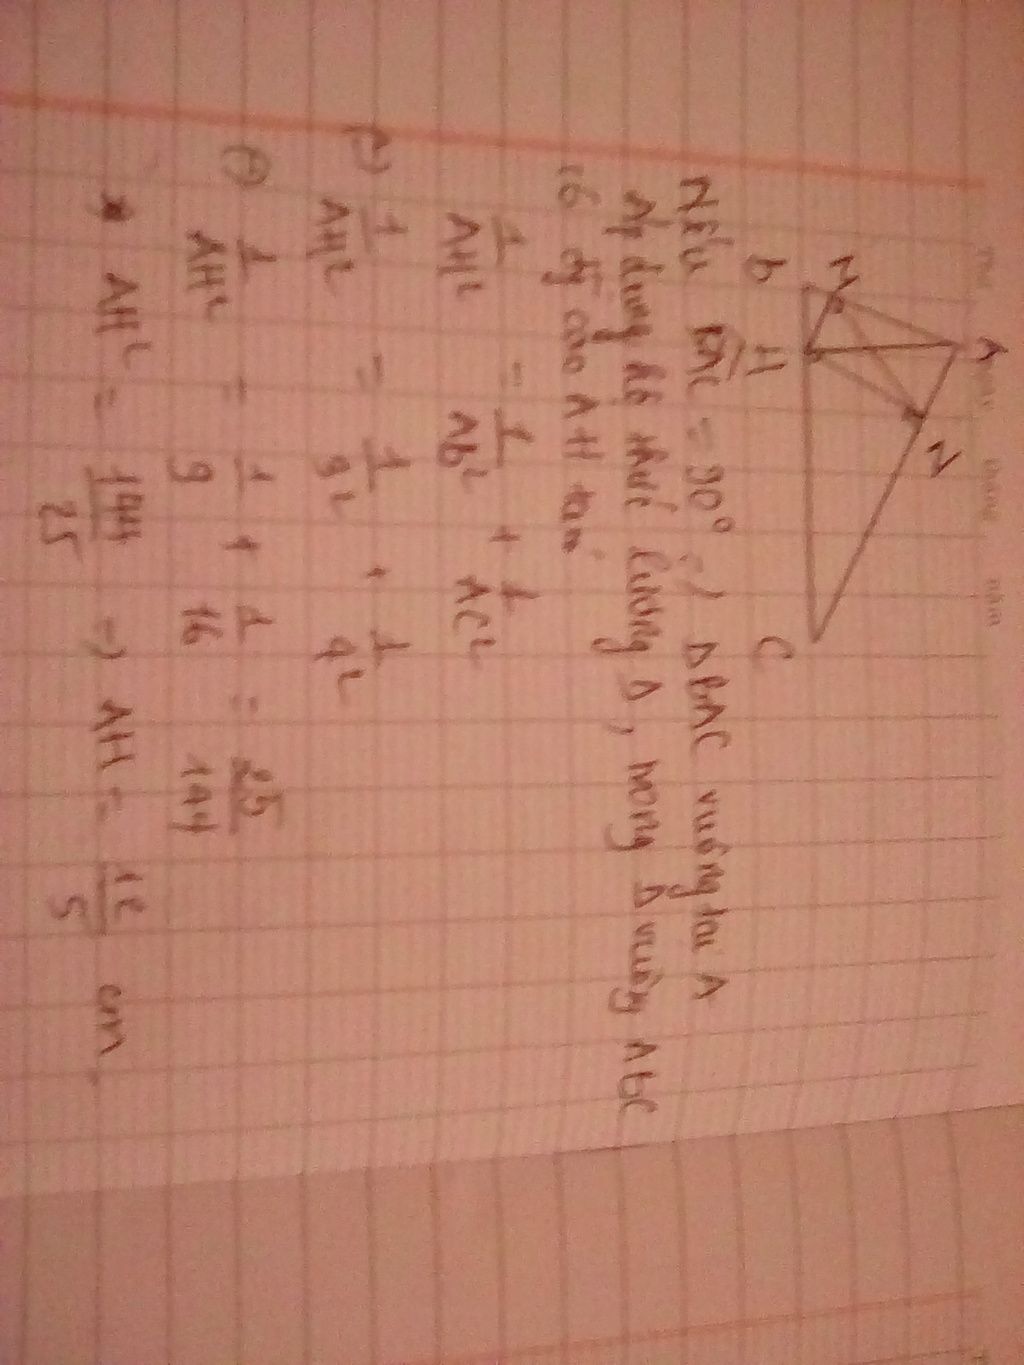 A
M
N
B H C
Nếu BAC = 90° => Δ BAC vuông tại A
Áp dụng hệ thức lượng Δ, trong Δ vuông ABC
có đg cao AH
1/AH² = 1/AB² + 1/AC²
=> 1/AH² = 1/3² + 1/4²
1/AH² = 1/9 + 1/16 = 25/144
AH² = 144/25 => AH = 12/5 cm